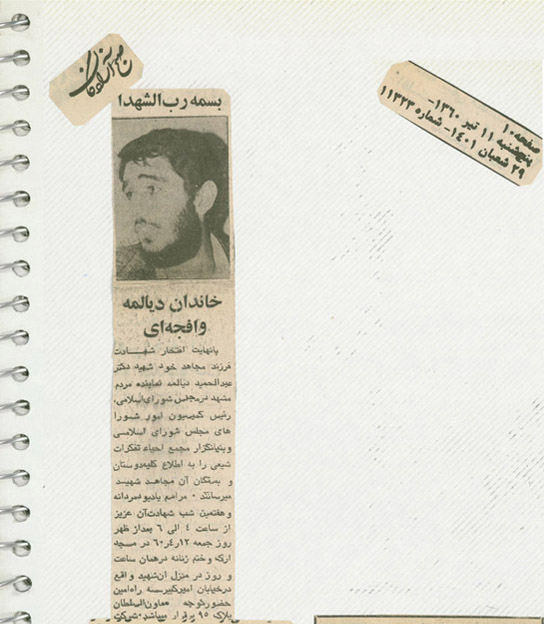 صبح آزادگان
صفحه ۱۰
پنجشنبه ۱۱ تیر ۱۳۶۰-
۲۹ شعبان ۱۴۰۱- شماره ۱۱۳۲۳
بسمه رب الشهدا
خاندان دیالمه
وافجه‌ای
بانهایت افتخار شهادت
فرزند مجاهد خود شهید دکتر
عبدالحمید دیالمه نماینده مردم
مشهد در مجلس شورای اسلامی،
رئیس کمیسیون امور شورا
های مجلس شورای اسلامی
و بنیانگزار مجمع احیاء تفکرات
شیعی را به اطلاع کلیه دوستان
و بستگان آن مجاهد شهید
میرسانند ۰ مراسم یادبود مردانه
و هفتمین شب شهادت آن عزیز
از ساعت ۴ الی ۶ بعداز ظهر
روز جمعه ۱۲ر۴ر۶۰ در مسجد
ارک و ختم زنانه در همان ساعت
و روز در منزل آن شهید واقع
در خیابان امیرکبیر سه راه امین
حضور کوچه معاون السلطان
پلاک ۹۵ برقرار میباشد شرکت